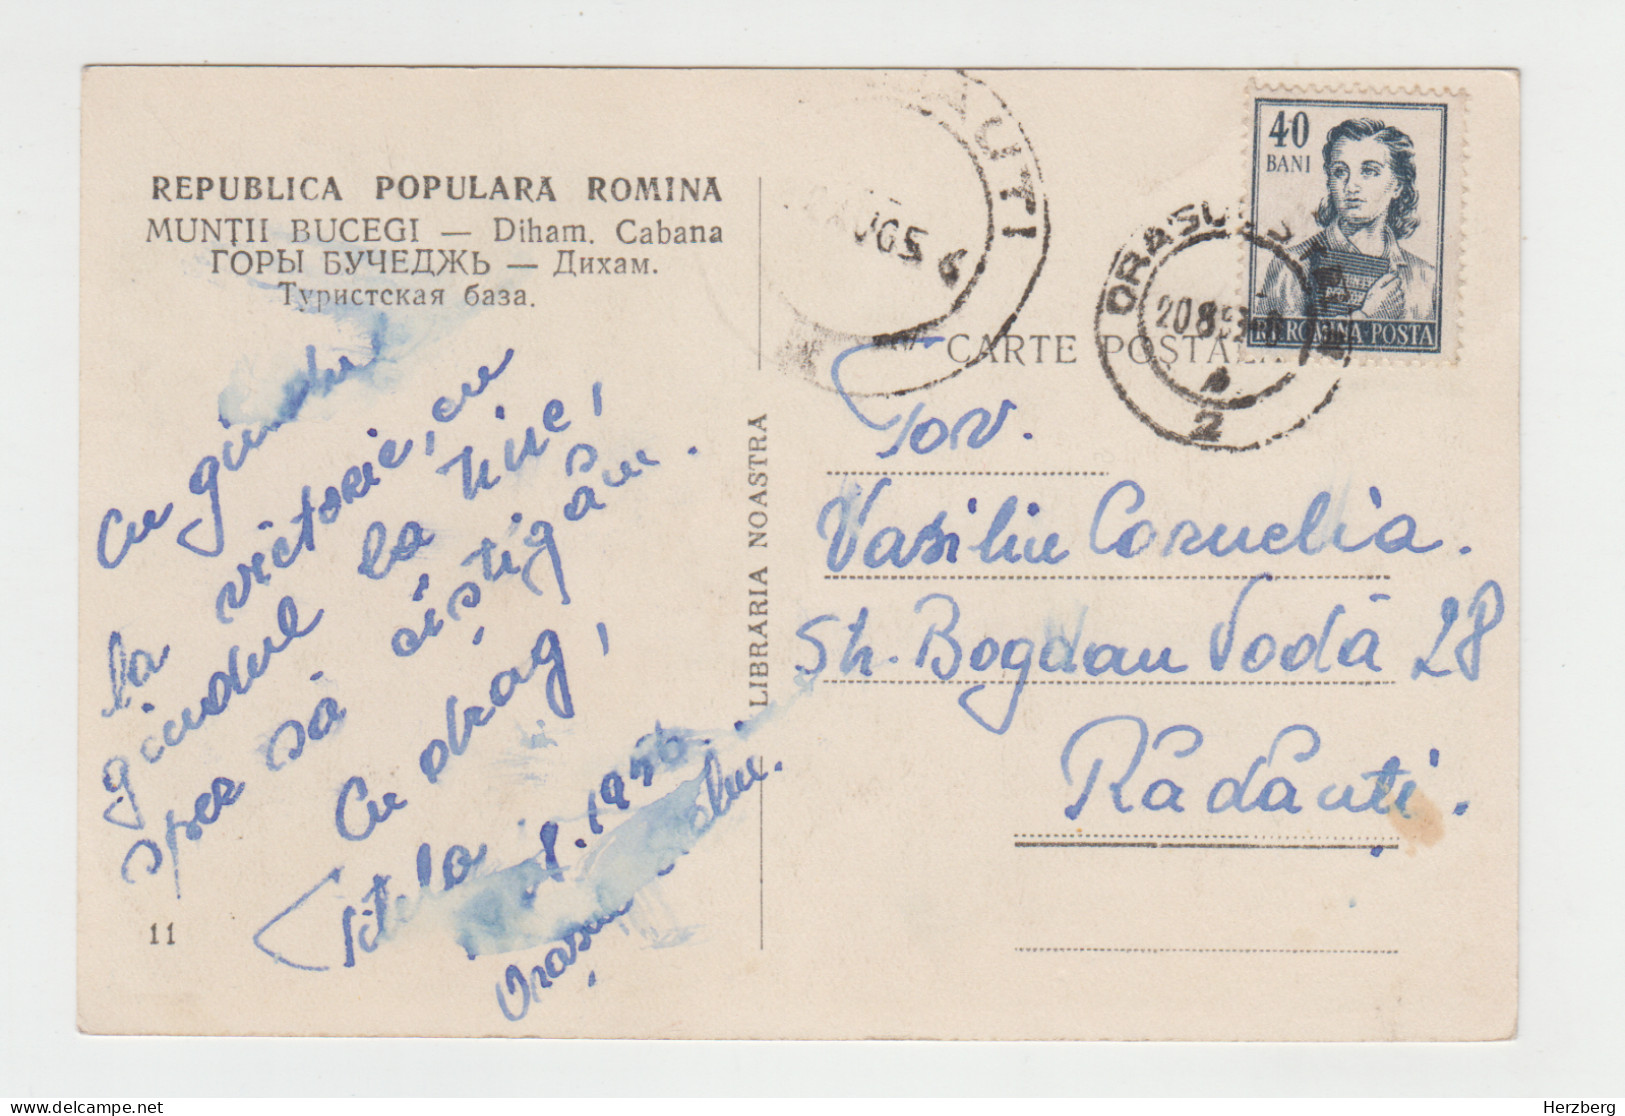 REPUBLICA POPULARĂ ROMINĂ
MUNȚII BUCEGI — Diham. Cabana
ГОРЫ БУЧЕДЖЬ — Дихам.
Туристская база.
Cu gîndul
la victorie, cu
gîndul la tine,
sper să cîștigăm.
Cu drag,
Titela
8.1956.
Orașul
11
LIBRĂRIA NOASTRĂ
CARTE POȘTALĂ
40
BANI
R.P. ROMINA-POSTA
ORASUL
20.8.
2
AUG 5 6
AUTI
Tov.
Vasiliu Cornelia.
Str. Bogdan Vodă 28
Rădăuți.
Herzberg